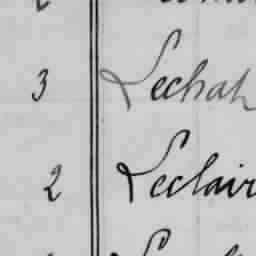 3 Lechat
2 Leclair